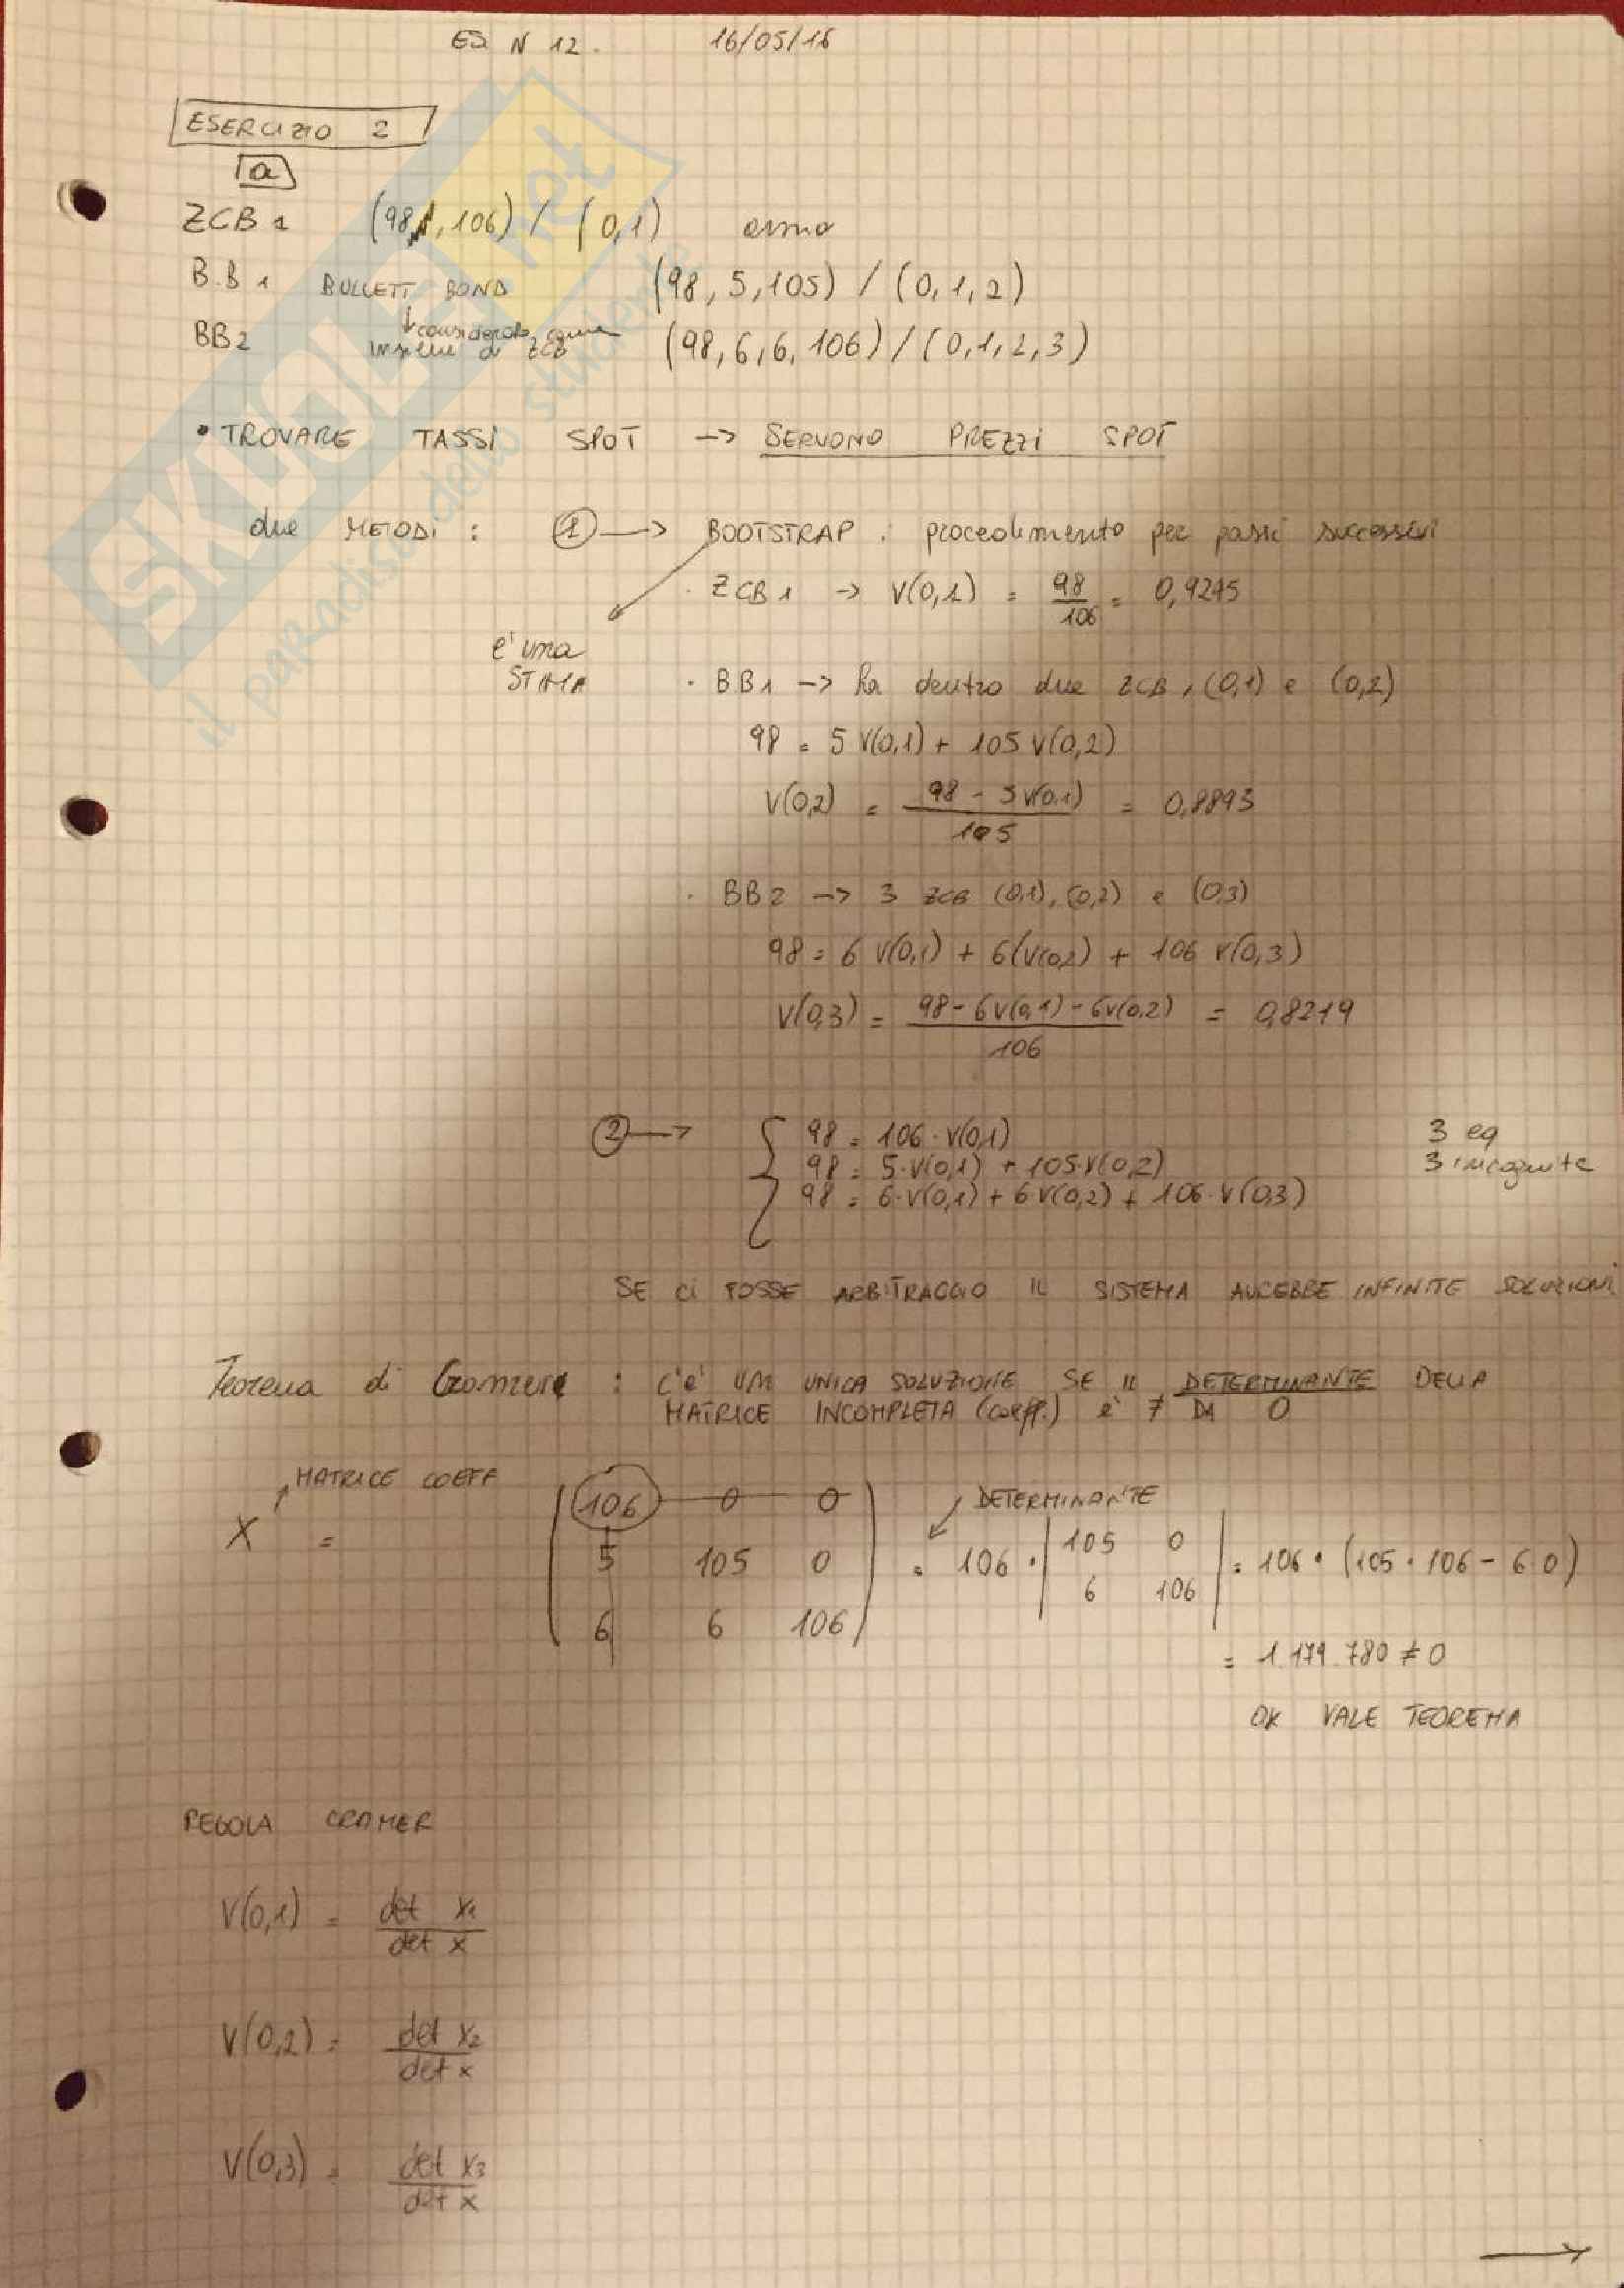 ES N 12. 16/05/16
ESERCIZIO 2
a
ZCB 1 (98, 106) / (0,1) anno
B.B 1 BULLETT BOND (98, 5, 105) / (0, 1, 2)
↓ considerato come
insieme di ZCB
BB2 (98, 6, 6, 106) / (0, 1, 2, 3)
• TROVARE TASSI SPOT → SERVONO PREZZI SPOT
due METODI : 1 → BOOTSTRAP : procedimento per passi successivi
è una
STIMA
· ZCB 1 → V(0,1) = 98/106 = 0,9245
· BB1 → ha dentro due ZCB, (0,1) e (0,2)
98 = 5 V(0,1) + 105 V(0,2)
V(0,2) = 98 - 5 V(0,1) / 105 = 0,8893
· BB2 → 3 ZCB (0,1), (0,2) e (0,3)
98 = 6 V(0,1) + 6(V(0,2) + 106 V(0,3)
V(0,3) = 98 - 6V(0,1) - 6V(0,2) / 106 = 0,8219
2 → { 98 = 106 · V(0,1) 3 eq
98 = 5·V(0,1) + 105·V(0,2) 3 incognite
98 = 6·V(0,1) + 6 V(0,2) + 106·V(0,3)
SE CI FOSSE ARBITRAGGIO IL SISTEMA AVREBBE INFINITE SOLUZIONI
Teorema di : C'È UN UNICA SOLUZIONE SE IL DETERMINANTE DELLA
MATRICE INCOMPLETA (coeff.) è ≠ DA 0
MATRICE COEFF
X = ( 106 0 0
5 105 0
6 6 106 )
DETERMINANTE
= 106 · | 105 0
6 106 | = 106 · (105 · 106 - 6·0)
= 1.179.780 ≠ 0
OK VALE TEOREMA
REGOLA CRAMER
V(0,1) = det X1 / det X
V(0,2) = det X2 / det X
V(0,3) = det X3 / det X
→
SKUOLA.net
il paradiso dello studente